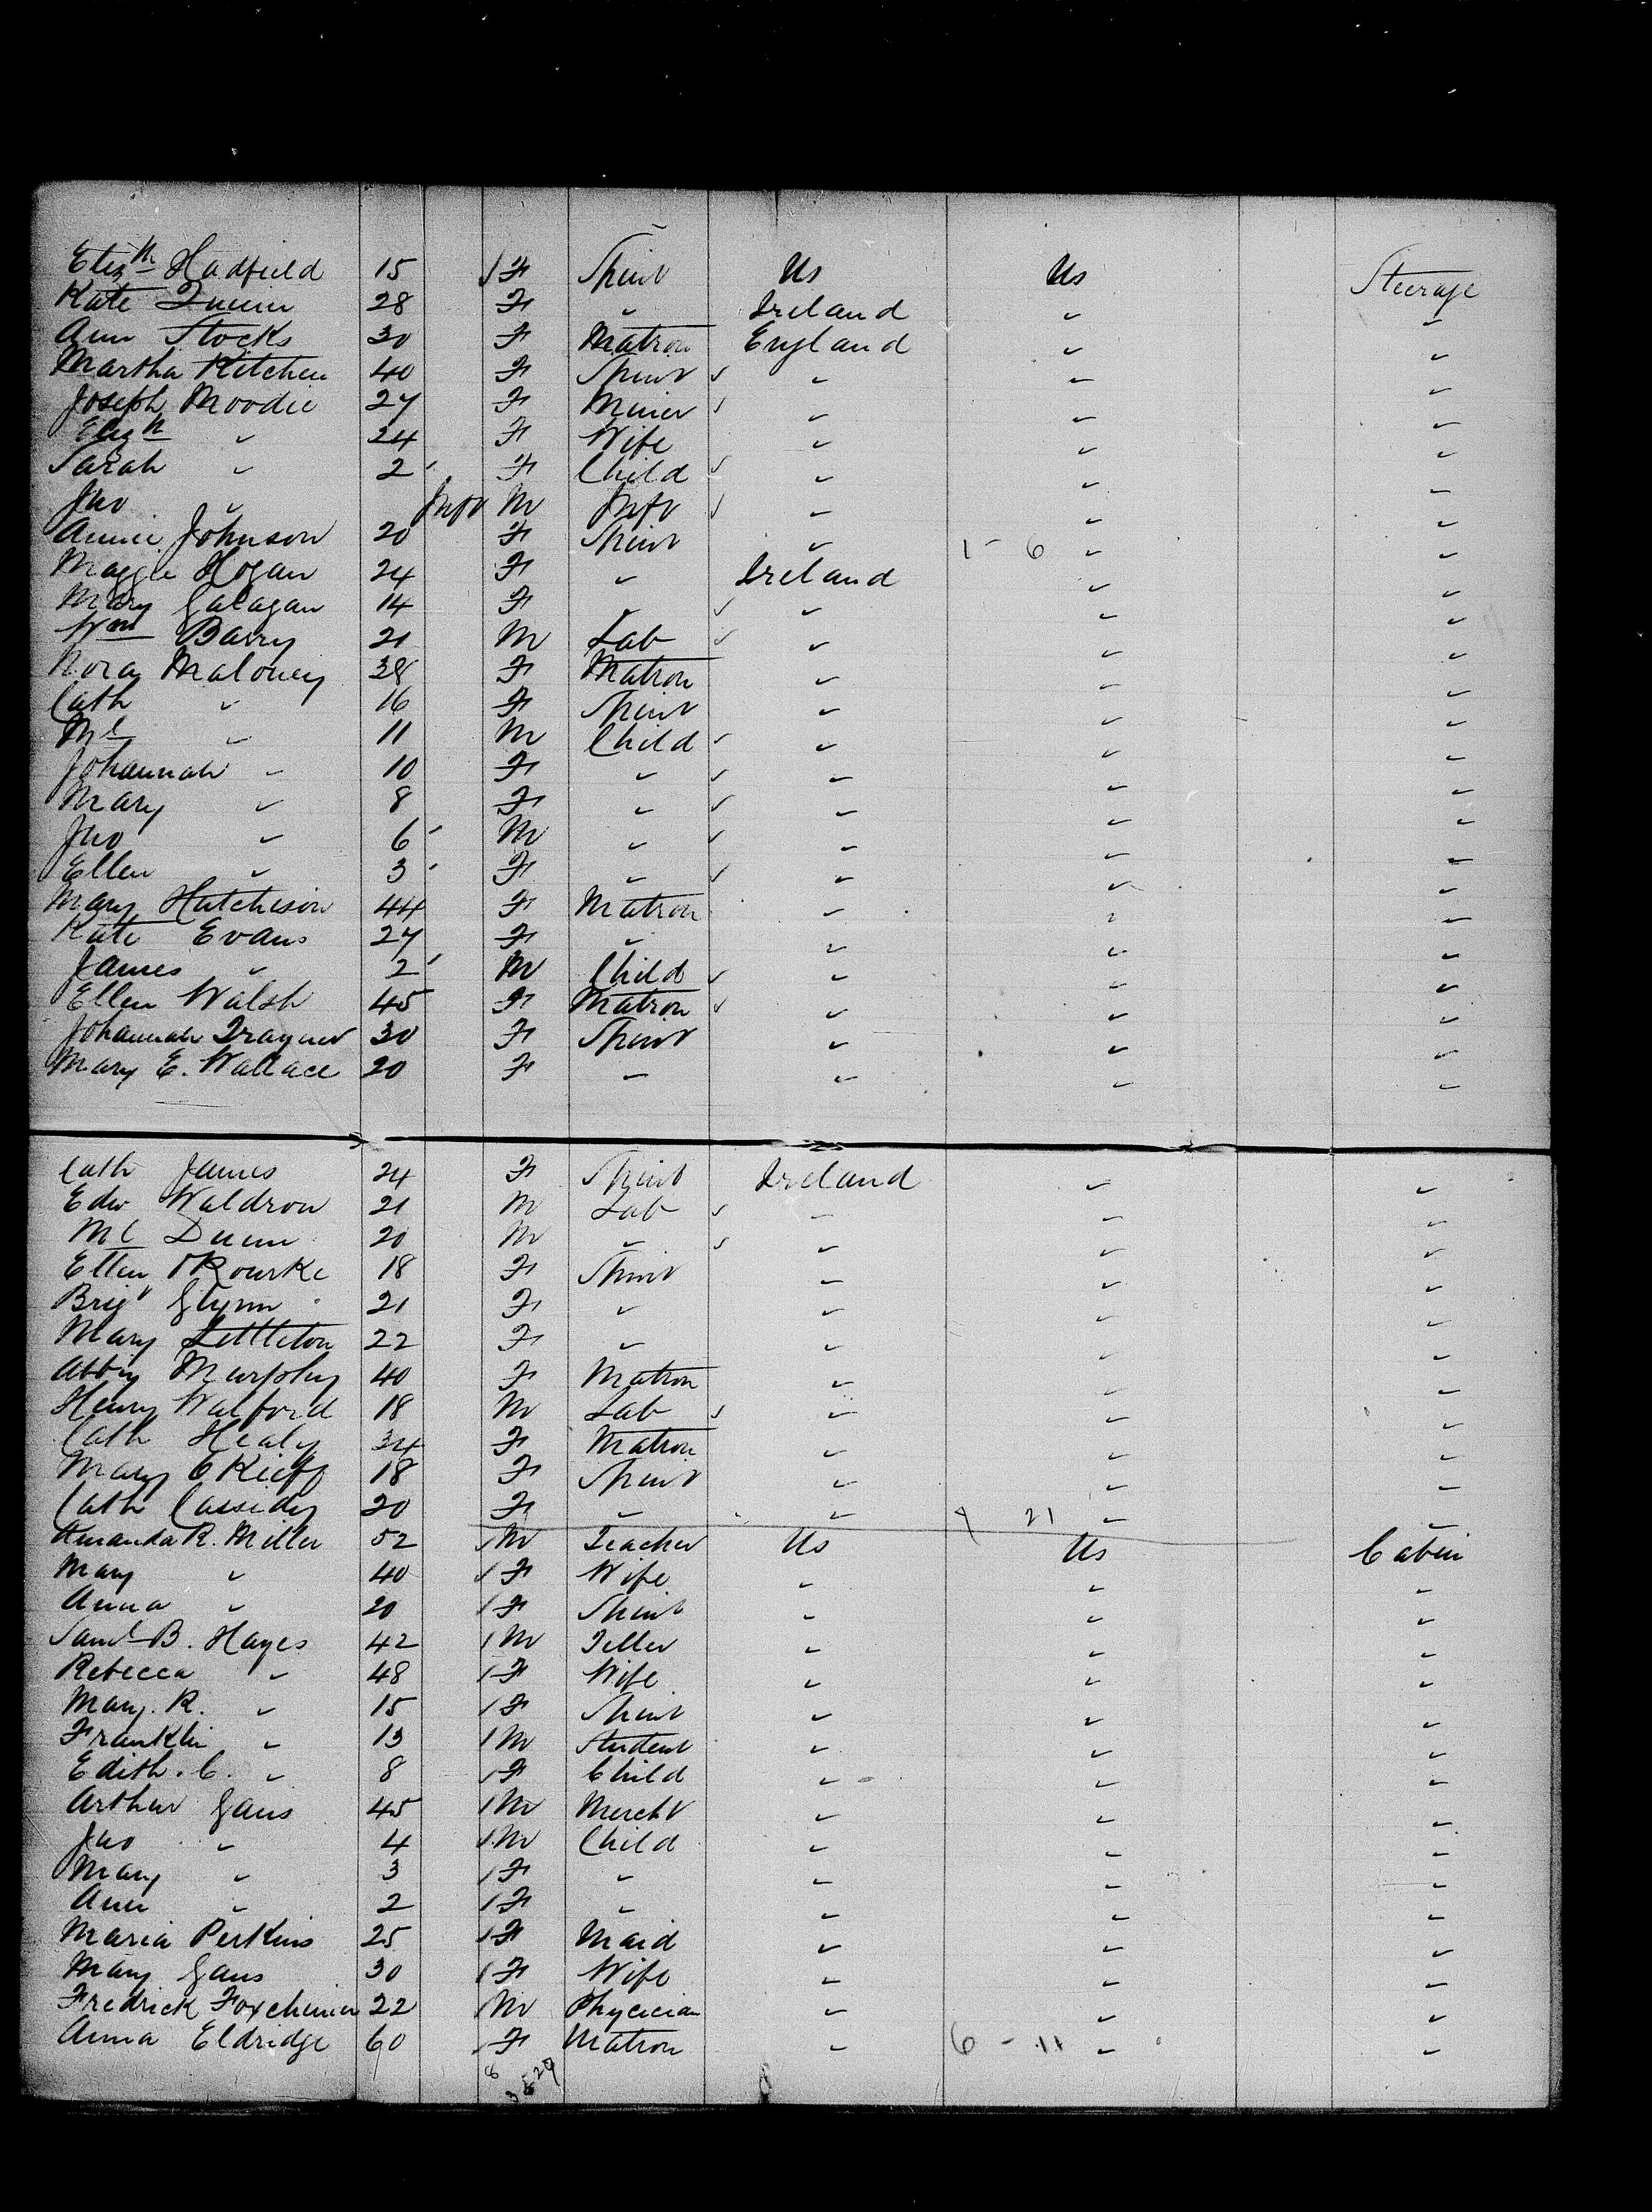 Eliz^h Hadfield 15 F Spins Us Us Steerage
Kate Quinn 28 F " Ireland " "
Ann Stocks 30 F Matron England " "
Martha Kitchen 40 F Spins " " "
Joseph Moodie 27 F Miner " " "
Eliz^h " 24 F Wife " " "
Sarah " 2 F Child " " "
Jno " Inft M Inft " " "
Annie Johnson 20 F Spins " 1 - 6 " "
Maggie Hogan 24 F " Ireland " "
Mary Galagan 14 F " " " "
W^m Barry 21 M Lab " " "
Nora Maloney 38 F Matron " " "
Cath " 16 F Spins " " "
Ml " 11 M Child " " "
Johannah " 10 F " " " "
Mary " 8 F " " " "
Jno " 6 M " " " "
Ellen " 3 F " " " "
Mary Hutchison 44 F Matron " " "
Kate Evans 27 F " " " "
James " 2 M Child " " "
Ellen Walsh 45 F Matron " " "
Johannah Traynor 30 F Spins " " "
Mary E. Wallace 20 F " " " "
Cath James 24 F Spins Ireland " "
Edw Waldron 21 M Lab " " "
Ml Dunn 20 M " " " "
Ellen O'Rourke 18 F Spins " " "
Brig^t Glynn 21 F " " " "
Mary Littleton 22 F " " " "
Abby Murphy 40 F Matron " " "
Henry Walford 18 M Lab " " "
Cath Healy 34 F Matron " " "
Mary O Kieff 18 F Spins " " "
Cath Cassidy 20 F " " 21 " "
Amanda R. Miller 52 M Teacher Us Us Cabin
Mary " 40 F Wife " " "
Anna " 20 F Spins " " "
Saml B. Hayes 42 M Teller " " "
Rebecca " 48 F Wife " " "
Mary. R. " 15 F Spins " " "
Franklin " 13 M Student " " "
Edith. C. " 8 F Child " " "
Arthur Gans 45 M Mercht " " "
Jno " 4 M Child " " "
Mary " 3 F " " " "
Ann " 2 F " " " "
Maria Perkins 25 F Maid " " "
Mary Gans 30 F Wife " " "
Fredrick 22 M Phycician " " "
Anna Eldridge 60 F Matron " 6 - 11 " "